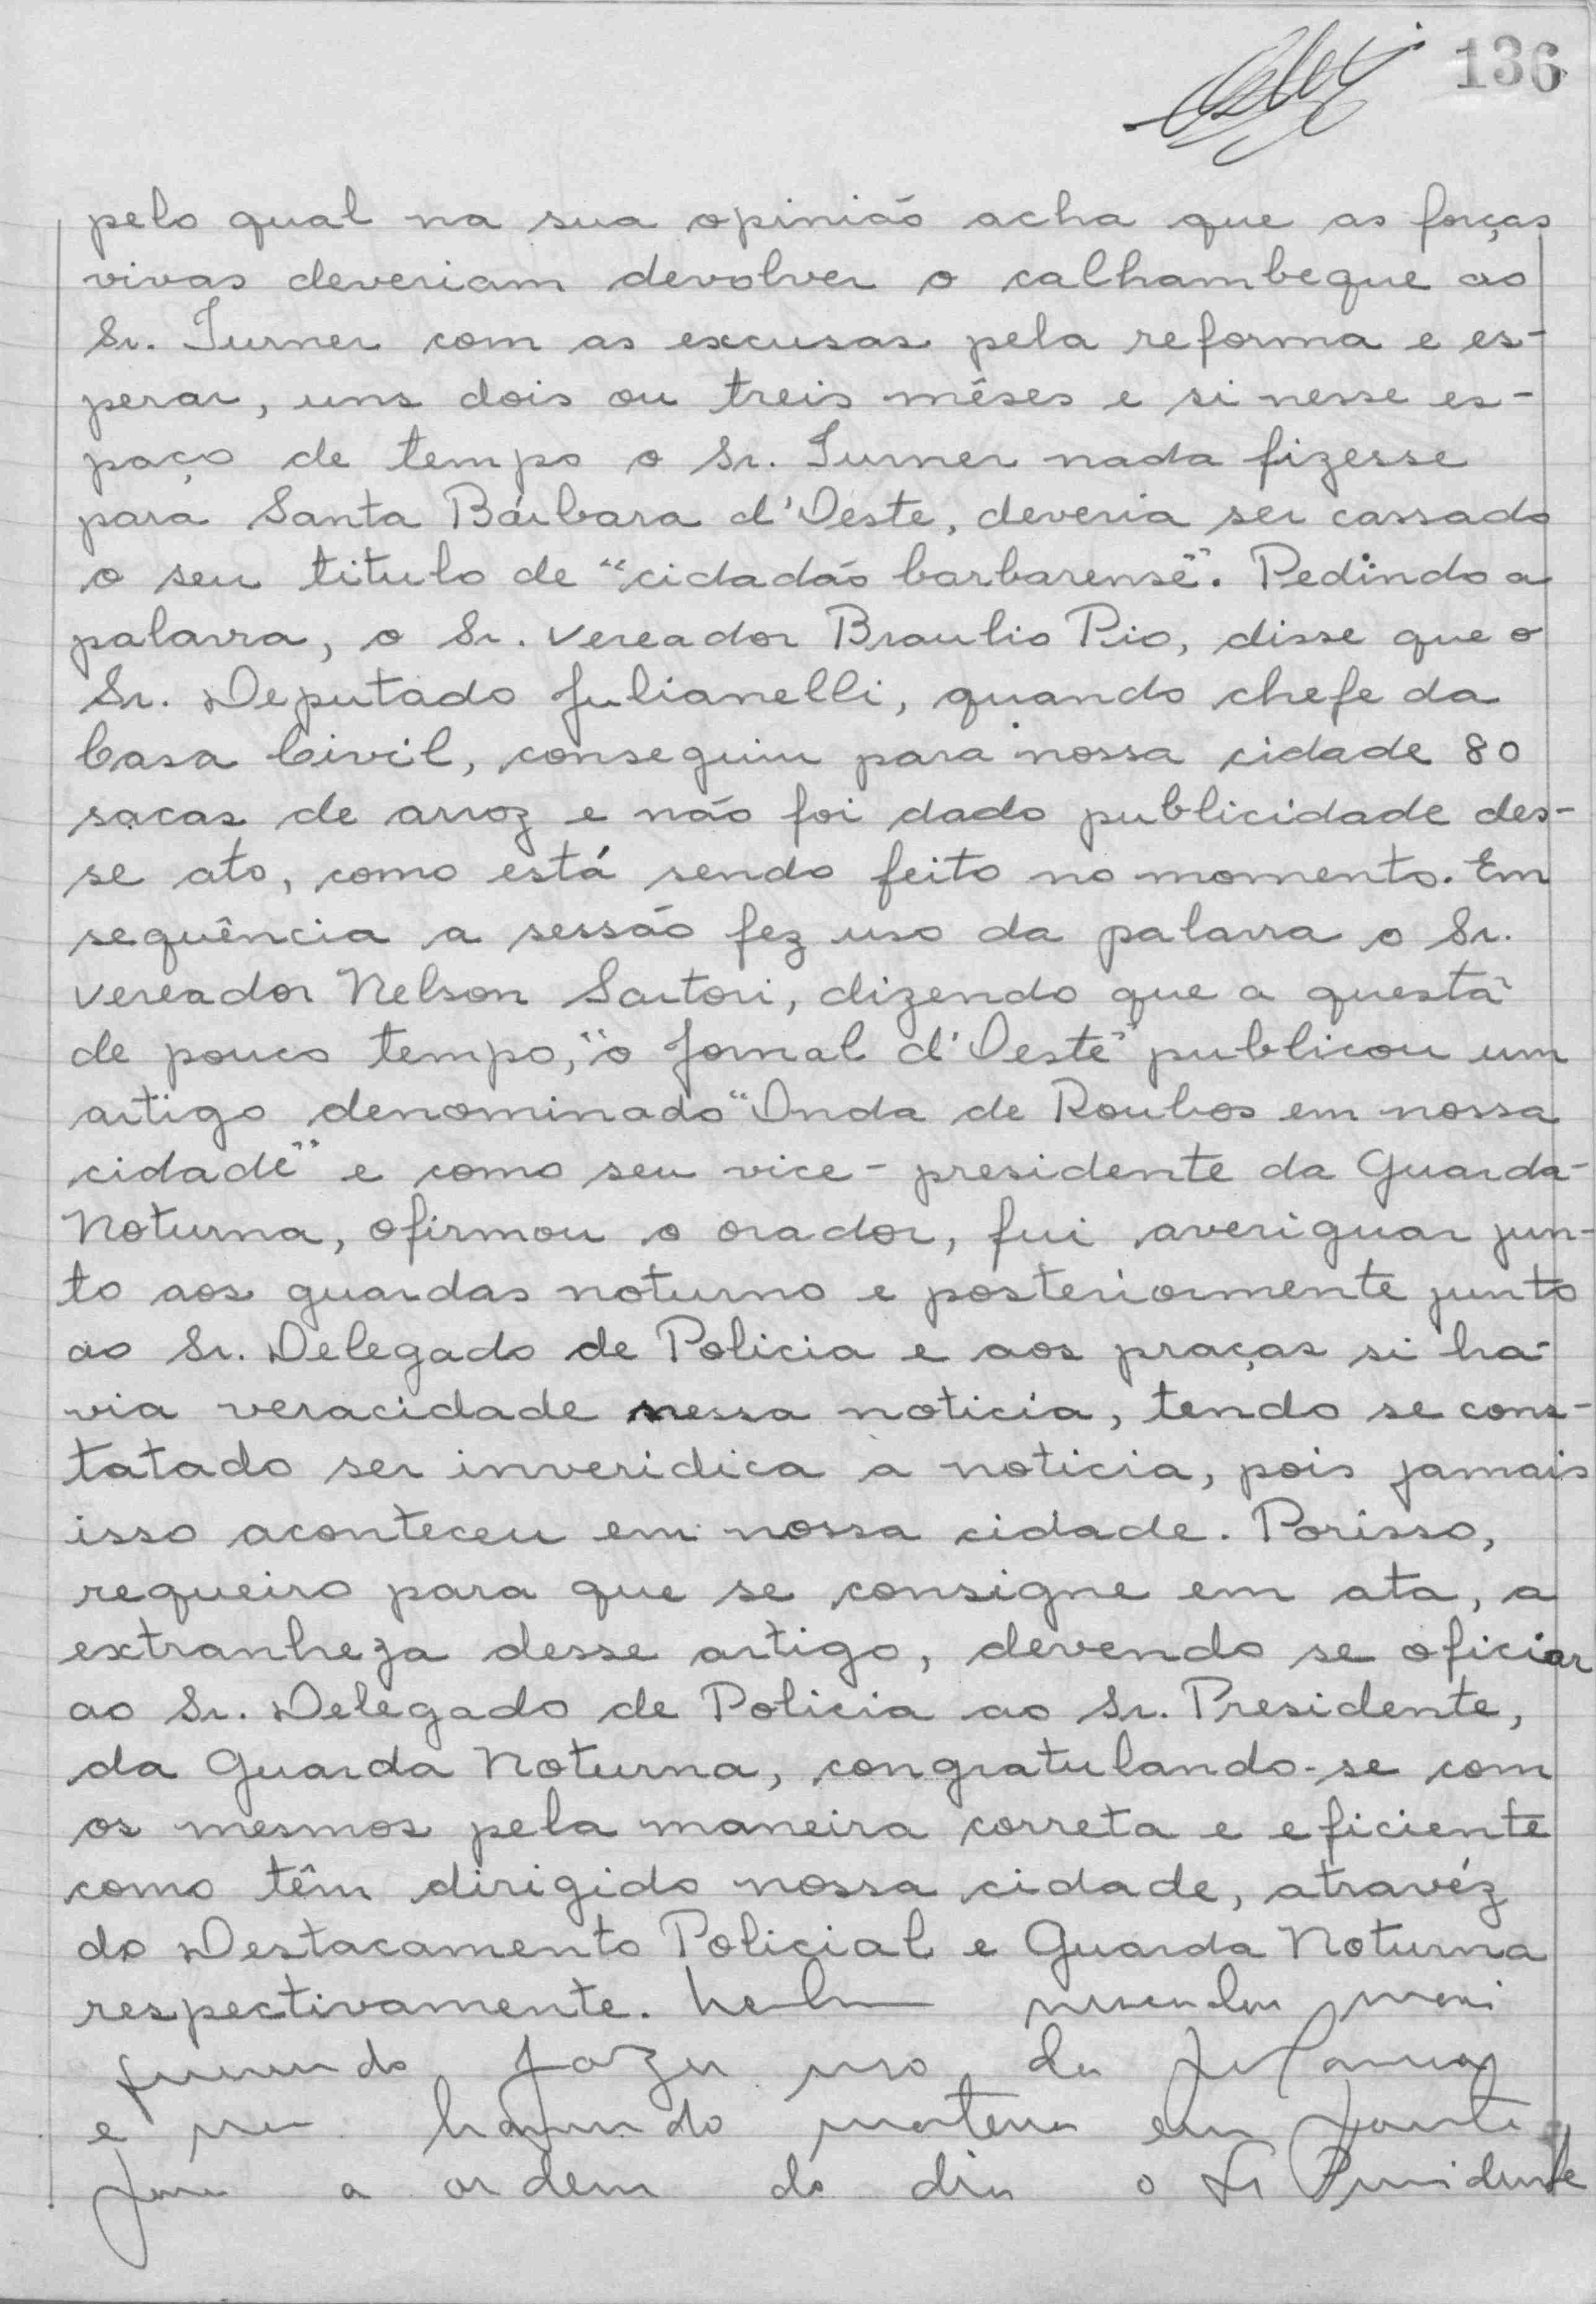 136
pelo qual na sua opinião acha que as forças
vivas deveriam devolver o calhambeque ao
Sr. Turner com as excusas pela reforma e es-
perar, uns dois ou treis mêses e si nesse es-
paço de tempo o Sr. Turner nada fizesse
para Santa Bárbara d'Oeste, deveria ser cassado
o seu titulo de "cidadão barbarense". Pedindo a
palavra, o Sr. vereador Braulio Pio, disse que o
Sr. Deputado Julianelli, quando chefe da
Casa Civil, conseguiu para nossa cidade 80
sacas de arroz e não foi dado publicidade des-
se ato, como está sendo feito no momento. Em
sequência a sessão fez uso da palavra o Sr.
vereador Nelson Sartori, dizendo que a questã
de pouco tempo, "o Jornal d'Oeste" publicou um
artigo denominado "Onda de Roubos em nossa
cidade" e como seu vice-presidente da Guarda-
Noturna, afirmou o orador, fui averiguar jun-
to aos guardas noturno e posteriormente junto
ao Sr. Delegado de Policia e aos praças si ha-
via veracidade nessa noticia, tendo se cons-
tatado ser inveridica a noticia, pois jamais
isso aconteceu em nossa cidade. Porisso,
requeiro para que se consigne em ata, a
extranheza desse artigo, devendo se oficiar
ao Sr. Delegado de Policia ao Sr. Presidente,
da Guarda Noturna, congratulando-se com
os mesmos pela maneira correta e eficiente
como têm dirigido nossa cidade, atravéz
do Destacamento Policial e Guarda Noturna
respectivamente. vereador mais
fazer uso da palavra
e não havendo materia em pauta
para a ordem do dia o Sr Presidente